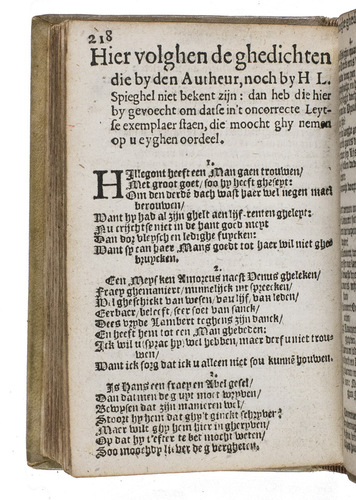 218
Hier volghen de ghedichten
die by den Autheur, noch by H L.
Spieghel niet bekent zijn: dan heb die hier
by gevoecht om datse in't oncorrecte Leyt-
se exemplaer staen, die moocht ghy nemen
op u eyghen oordeel.
1.
HIllegont heeft een Man gaen trouwen/
Met groot goet/ soo hy heeft gheseyt:
Om den derdē dach wast haer wel negen mael
berouwen/
Want hy had al zijn ghelt aen lijf-renten gheleyt:
Nu crijchtse niet in de hant goed
Van dor vleysch en ledighe
Want sy can haer Mans goedt tot haer wil niet ghe
bruycken.
2.
Een Meysken Amoreus naest Venus gheleken/
Fraey ghemaniert/ minnelijck int spreecken/
Wel gheschickt van wesen/ van lijf/ van leden/
Eerbaer/ beleeft/ seer soet van sanck/
Dees vryde Lambert teghens zijn danck/
En heeft hem tot een Man ghebeden:
Ick wil u sprac hy wel hebben/ maer derf u niet trou-
wen/
Want ick sorg dat ick u alleen niet sou kunnē houwen.
Is Hans een fraey en Abel gesel/
Dan dat men de guyt moet
Bewysen dat zijn manieren wel/
Stoort hy hem dat ghy't
Maer wilt ghy hem hier in gheryven/
Op dat hy t'eſter te bet mocht weten/
Soo moochdy liever de g vergheten.